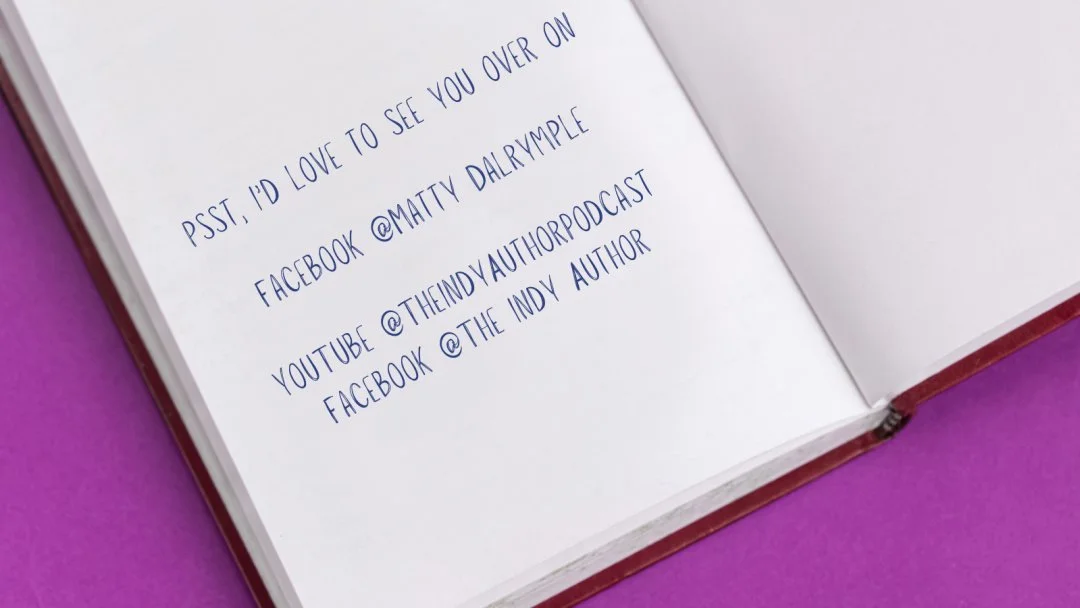 PSST, I'D LOVE TO SEE YOU OVER ON
FACEBOOK @MATTY DALRYMPLE
YOUTUBE @THEINDYAUTHORPODCAST
FACEBOOK @THE INDY AUTHOR